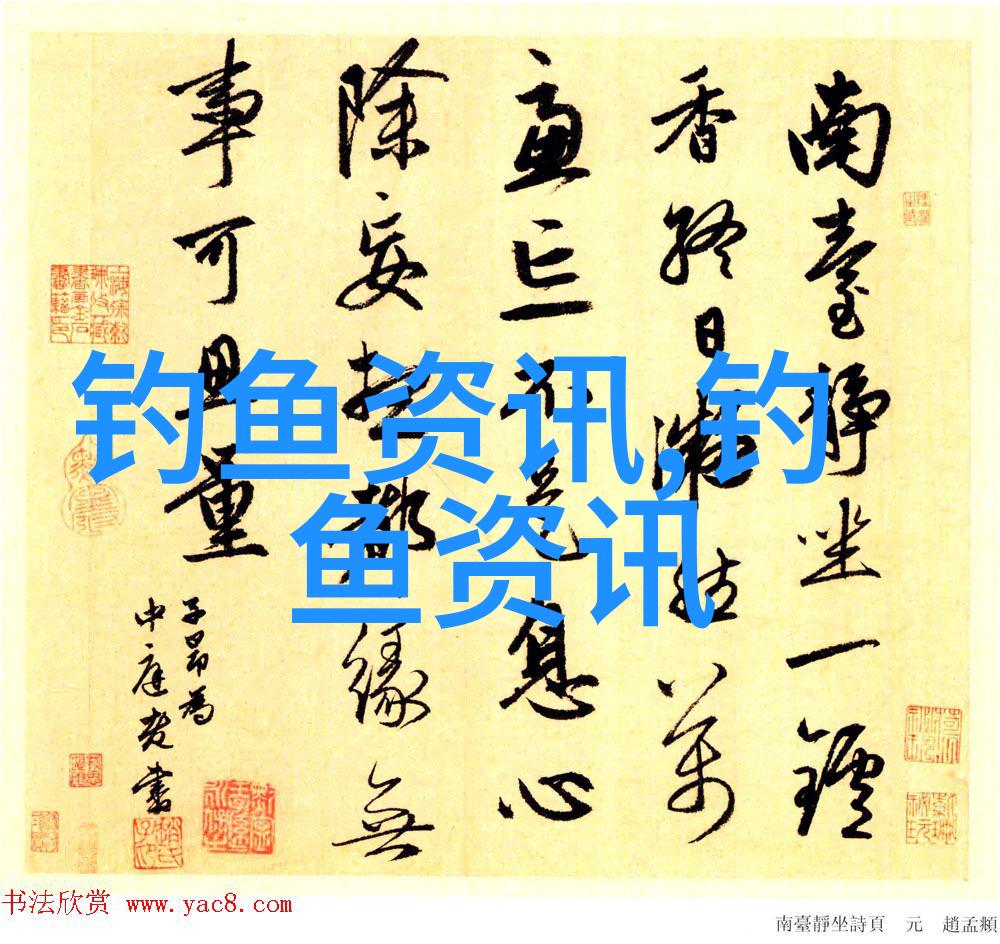 南臺靜坐一鑪
香終日凝然萬
慮亡不是息心
除妄想都緣無
事可思量
子昂為
中庭老書
钓鱼资讯,钓
鱼资讯
书法欣赏 www.yac8.com
南臺靜坐詩頁 元 趙孟頫